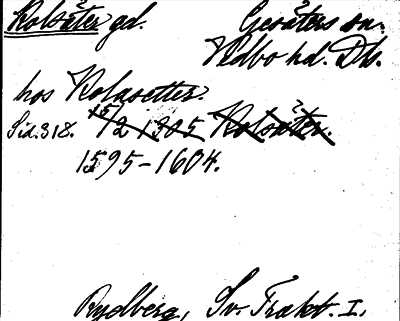 Kolsäter gd. Gesäters sn.
Vedbo hd. Dls.
hos Kolasetter.
Sid. 318. 15/2 1305 Kolsäter.
1595-1604.
Rydberg, Sv. Trakt. I.